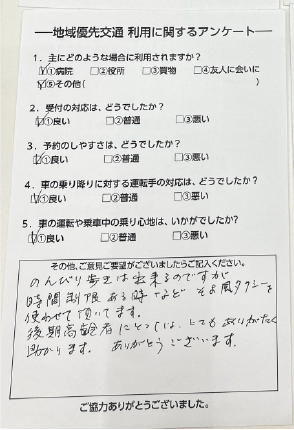 ―地域優先交通 利用に関するアンケート―
1．主にどのような場合に利用されますか？
☑①病院 □②役所 □③買物 □④友人に会いに
☑⑤その他( )
2．受付の対応は、どうでしたか？
☑①良い □②普通 □③悪い
3．予約のしやすさは、どうでしたか？
☑①良い □②普通 □③悪い
4．車の乗り降りに対する運転手の対応は、どうでしたか？
☑①良い □②普通 □③悪い
5．車の運転や乗車中の乗り心地は、いかがでしたか？
☑①良い □②普通 □③悪い
その他、ご意見ご要望がございましたらご記入ください。
のんびり歩きは出来るのですが
時間制限ある時など そよ風タクシーを
使わせて頂いてます。
後期高齢者にとっては、とてもありがたく
助かります。 ありがとうございます。
ご協力ありがとうございました。